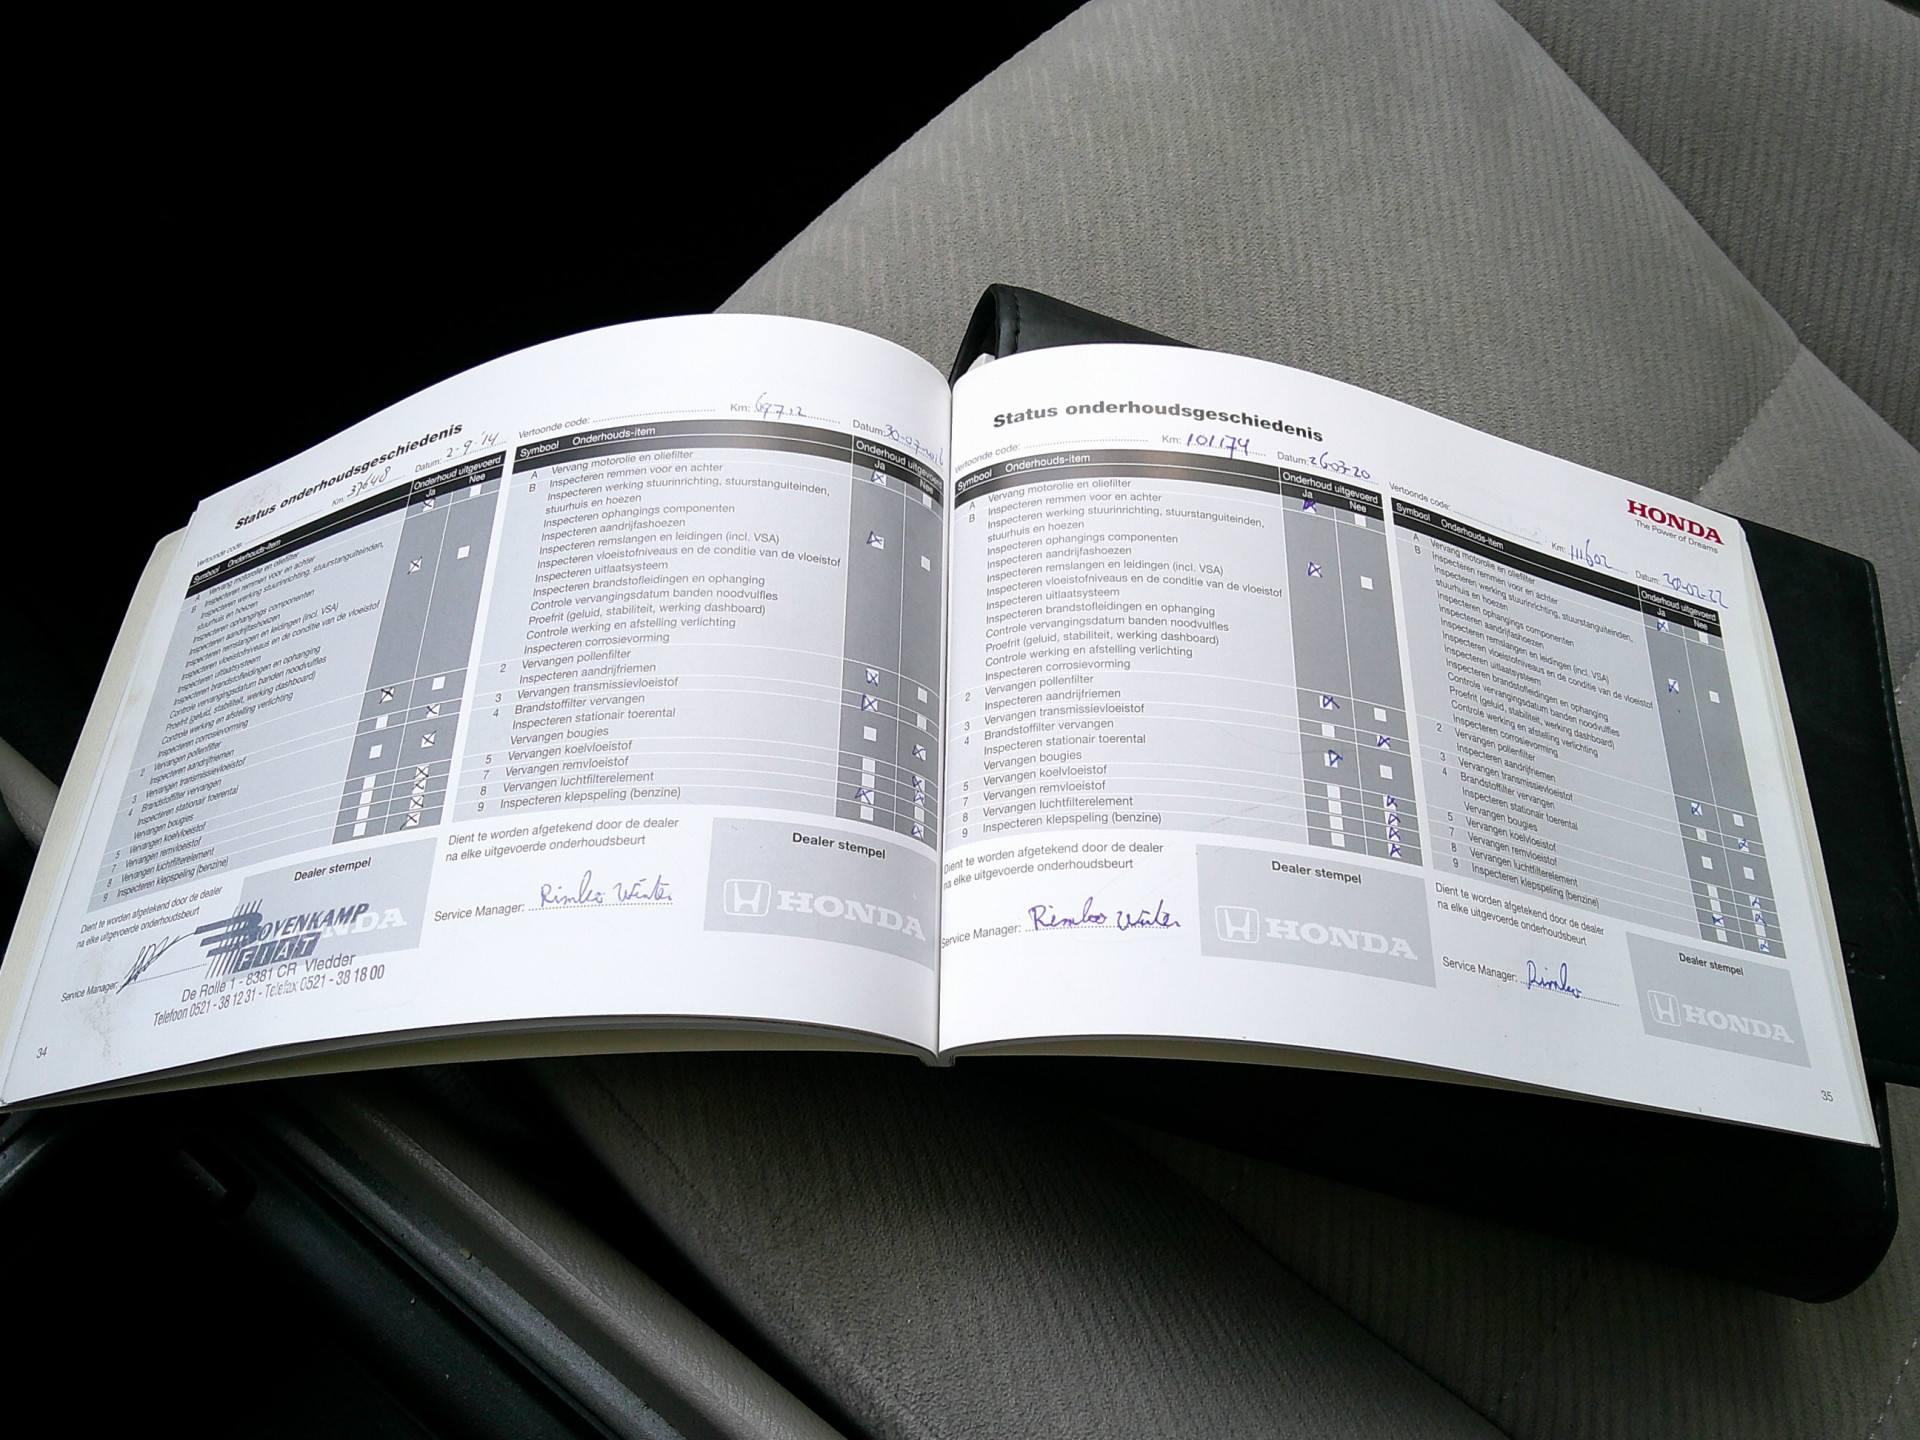 Status onderhoudsgeschiedenis
Vertoonde code: Km: 37648 Datum: 2-9-'14
Symbool Onderhouds-item Onderhoud uitgevoerd
Ja Nee
A Vervang motorolie en oliefilter
B Inspecteren remmen voor en achter
Inspecteren werking stuurinrichting, stuurstanguiteinden,
stuurhuis en hoezen
Inspecteren ophangings componenten
Inspecteren aandrijfashoezen
Inspecteren remslangen en leidingen (incl. VSA)
Inspecteren vloeistofniveaus en de conditie van de vloeistof
Inspecteren uitlaatsysteem
Inspecteren brandstofleidingen en ophanging
Controle vervangingsdatum banden noodvulfles
Proefrit (geluid, stabiliteit, werking dashboard)
Controle werking en afstelling verlichting
Inspecteren corrosievorming
2 Vervangen pollenfilter
Inspecteren aandrijfriemen
3 Vervangen transmissievloeistof
4 Brandstoffilter vervangen
Inspecteren stationair toerental
Vervangen bougies
5 Vervangen koelvloeistof
7 Vervangen remvloeistof
8 Vervangen luchtfilterelement
9 Inspecteren klepspeling (benzine)
Dient te worden afgetekend door de dealer
na elke uitgevoerde onderhoudsbeurt
Service Manager:
Dealer stempel
BOVENKAMP
FIAT
De Rolle 1 - 8381 CR Vledder
Telefoon 0521 - 38 12 31 - Telefax 0521 - 38 18 00
34
Vertoonde code: Km: Datum:
Symbool Onderhouds-item Onderhoud uitgevoerd
Ja Nee
A Vervang motorolie en oliefilter
B Inspecteren remmen voor en achter
Inspecteren werking stuurinrichting, stuurstanguiteinden,
stuurhuis en hoezen
Inspecteren ophangings componenten
Inspecteren aandrijfashoezen
Inspecteren remslangen en leidingen (incl. VSA)
Inspecteren vloeistofniveaus en de conditie van de vloeistof
Inspecteren uitlaatsysteem
Inspecteren brandstofleidingen en ophanging
Controle vervangingsdatum banden noodvulfles
Proefrit (geluid, stabiliteit, werking dashboard)
Controle werking en afstelling verlichting
Inspecteren corrosievorming
2 Vervangen pollenfilter
Inspecteren aandrijfriemen
3 Vervangen transmissievloeistof
4 Brandstoffilter vervangen
Inspecteren stationair toerental
Vervangen bougies
5 Vervangen koelvloeistof
7 Vervangen remvloeistof
8 Vervangen luchtfilterelement
9 Inspecteren klepspeling (benzine)
Dient te worden afgetekend door de dealer
na elke uitgevoerde onderhoudsbeurt
Service Manager: Rimko Winter
Dealer stempel
HONDA
Status onderhoudsgeschiedenis
Vertoonde code: Km: 101174 Datum: 26-03-20
Symbool Onderhouds-item Onderhoud uitgevoerd
Ja Nee
A Vervang motorolie en oliefilter
B Inspecteren remmen voor en achter
Inspecteren werking stuurinrichting, stuurstanguiteinden,
stuurhuis en hoezen
Inspecteren ophangings componenten
Inspecteren aandrijfashoezen
Inspecteren remslangen en leidingen (incl. VSA)
Inspecteren vloeistofniveaus en de conditie van de vloeistof
Inspecteren uitlaatsysteem
Inspecteren brandstofleidingen en ophanging
Controle vervangingsdatum banden noodvulfles
Proefrit (geluid, stabiliteit, werking dashboard)
Controle werking en afstelling verlichting
Inspecteren corrosievorming
2 Vervangen pollenfilter
Inspecteren aandrijfriemen
3 Vervangen transmissievloeistof
4 Brandstoffilter vervangen
Inspecteren stationair toerental
Vervangen bougies
5 Vervangen koelvloeistof
7 Vervangen remvloeistof
8 Vervangen luchtfilterelement
9 Inspecteren klepspeling (benzine)
Dient te worden afgetekend door de dealer
na elke uitgevoerde onderhoudsbeurt
Service Manager: Rimko Winter
Dealer stempel
HONDA
HONDA
The Power of Dreams
Vertoonde code: Km: 111602 Datum:
Symbool Onderhouds-item Onderhoud uitgevoerd
Ja Nee
A Vervang motorolie en oliefilter
B Inspecteren remmen voor en achter
Inspecteren werking stuurinrichting, stuurstanguiteinden,
stuurhuis en hoezen
Inspecteren ophangings componenten
Inspecteren aandrijfashoezen
Inspecteren remslangen en leidingen (incl. VSA)
Inspecteren vloeistofniveaus en de conditie van de vloeistof
Inspecteren uitlaatsysteem
Inspecteren brandstofleidingen en ophanging
Controle vervangingsdatum banden noodvulfles
Proefrit (geluid, stabiliteit, werking dashboard)
Controle werking en afstelling verlichting
Inspecteren corrosievorming
2 Vervangen pollenfilter
Inspecteren aandrijfriemen
3 Vervangen transmissievloeistof
4 Brandstoffilter vervangen
Inspecteren stationair toerental
Vervangen bougies
5 Vervangen koelvloeistof
7 Vervangen remvloeistof
8 Vervangen luchtfilterelement
9 Inspecteren klepspeling (benzine)
Dient te worden afgetekend door de dealer
na elke uitgevoerde onderhoudsbeurt
Service Manager: Rimko
Dealer stempel
HONDA
35